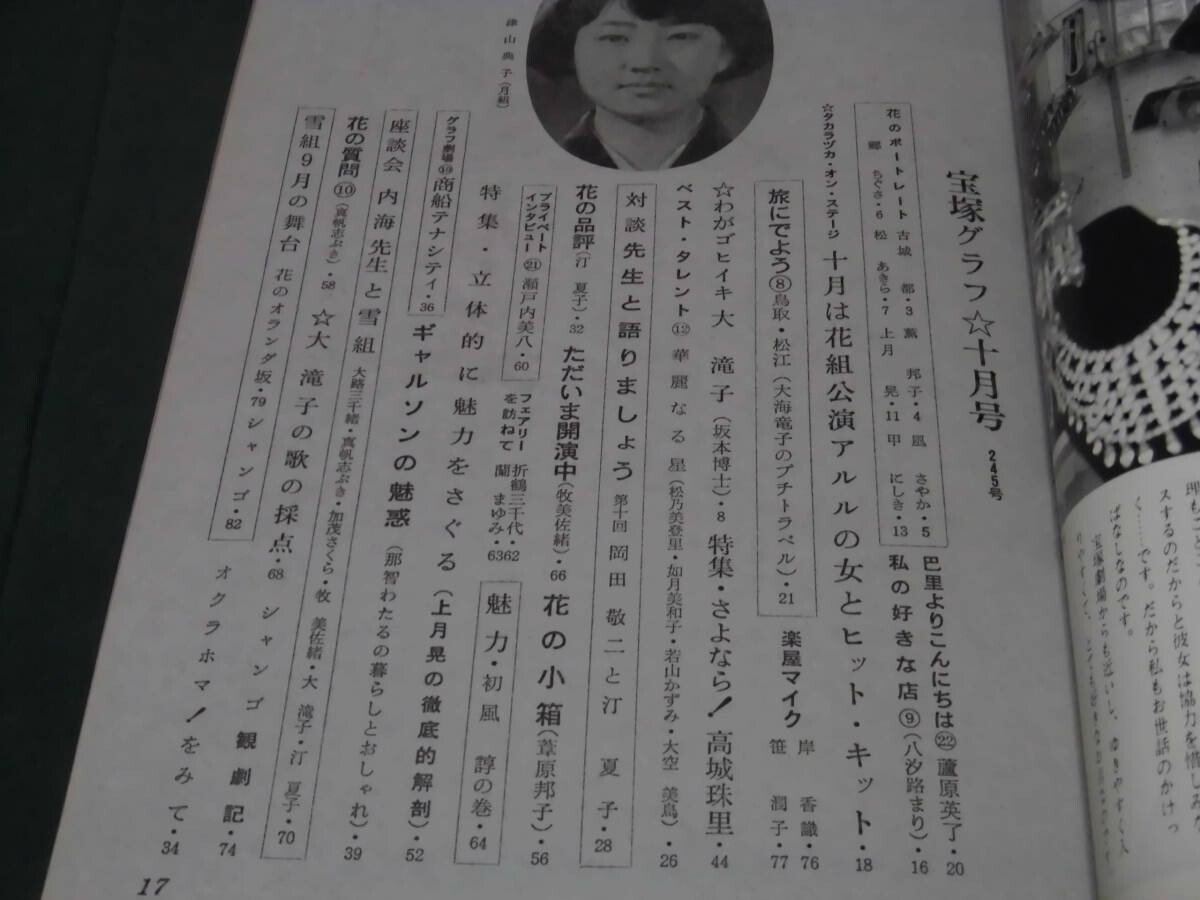 宝塚グラフ☆十月号 245号
花のポートレート 古城 都・3 薫 邦子・4 凰 さやか・5
郷 ちぐさ・6 松 あきら・7 上月 晃・11 甲 にしき・13
巴里よりこんにちは㉒蘆原英了・20
私の好きな店⑨(八汐路まり)・16
☆タカラヅカ・オン・ステージ 十月は花組公演アルルの女とヒット・キット・18
旅にでよう⑧鳥取・松江(大海竜子のプチトラベル)・21
楽屋マイク 岸 香織・76
笹 潤子・77
☆わがゴヒイキ大 滝子(坂本博士)・8 特集・さよなら!高城珠里・44
ベスト・タレント⑫華麗なる星(松乃美登里・如月美和子・若山かずみ・大空 美鳥)・26
対談先生と語りましょう 第十回 岡田 敬二と汀 夏子・28
花の品評(汀 夏子)・32 ただいま開演中(牧美佐緒)・66 花の小箱(葦原邦子)・56
プライベートインタビュー㉑瀬戸内美八・60
フェアリーを訪ねて 折鶴三千代・62
蘭 まゆみ・63
魅力・初風 諄の巻・64
特集・立体的に魅力をさぐる(上月晃の徹底的解剖)・52
グラフ劇場⑩商船テナシティ・36
ギャルソンの魅惑(那智わたるの暮らしとおしゃれ)・39
座談会 内海先生と雪組 大路三千緒・真帆志ぶき・加茂さくら・牧 美佐緒・大 滝子・汀 夏子・70
花の質問⑩(真帆志ぶき)・58 ☆大 滝子の歌の採点・68 シャンゴ観劇記・74
雪組9月の舞台 花のオランダ坂・79 シャンゴ・82
オクラホマ!をみて・34
津山典子(月組)
17
スするのだからと彼女は協力を惜しみな
く……です。だから私もお世話のかけっ
ぱなしなのです。
宝塚劇場からも近いし、ゆきやすく入